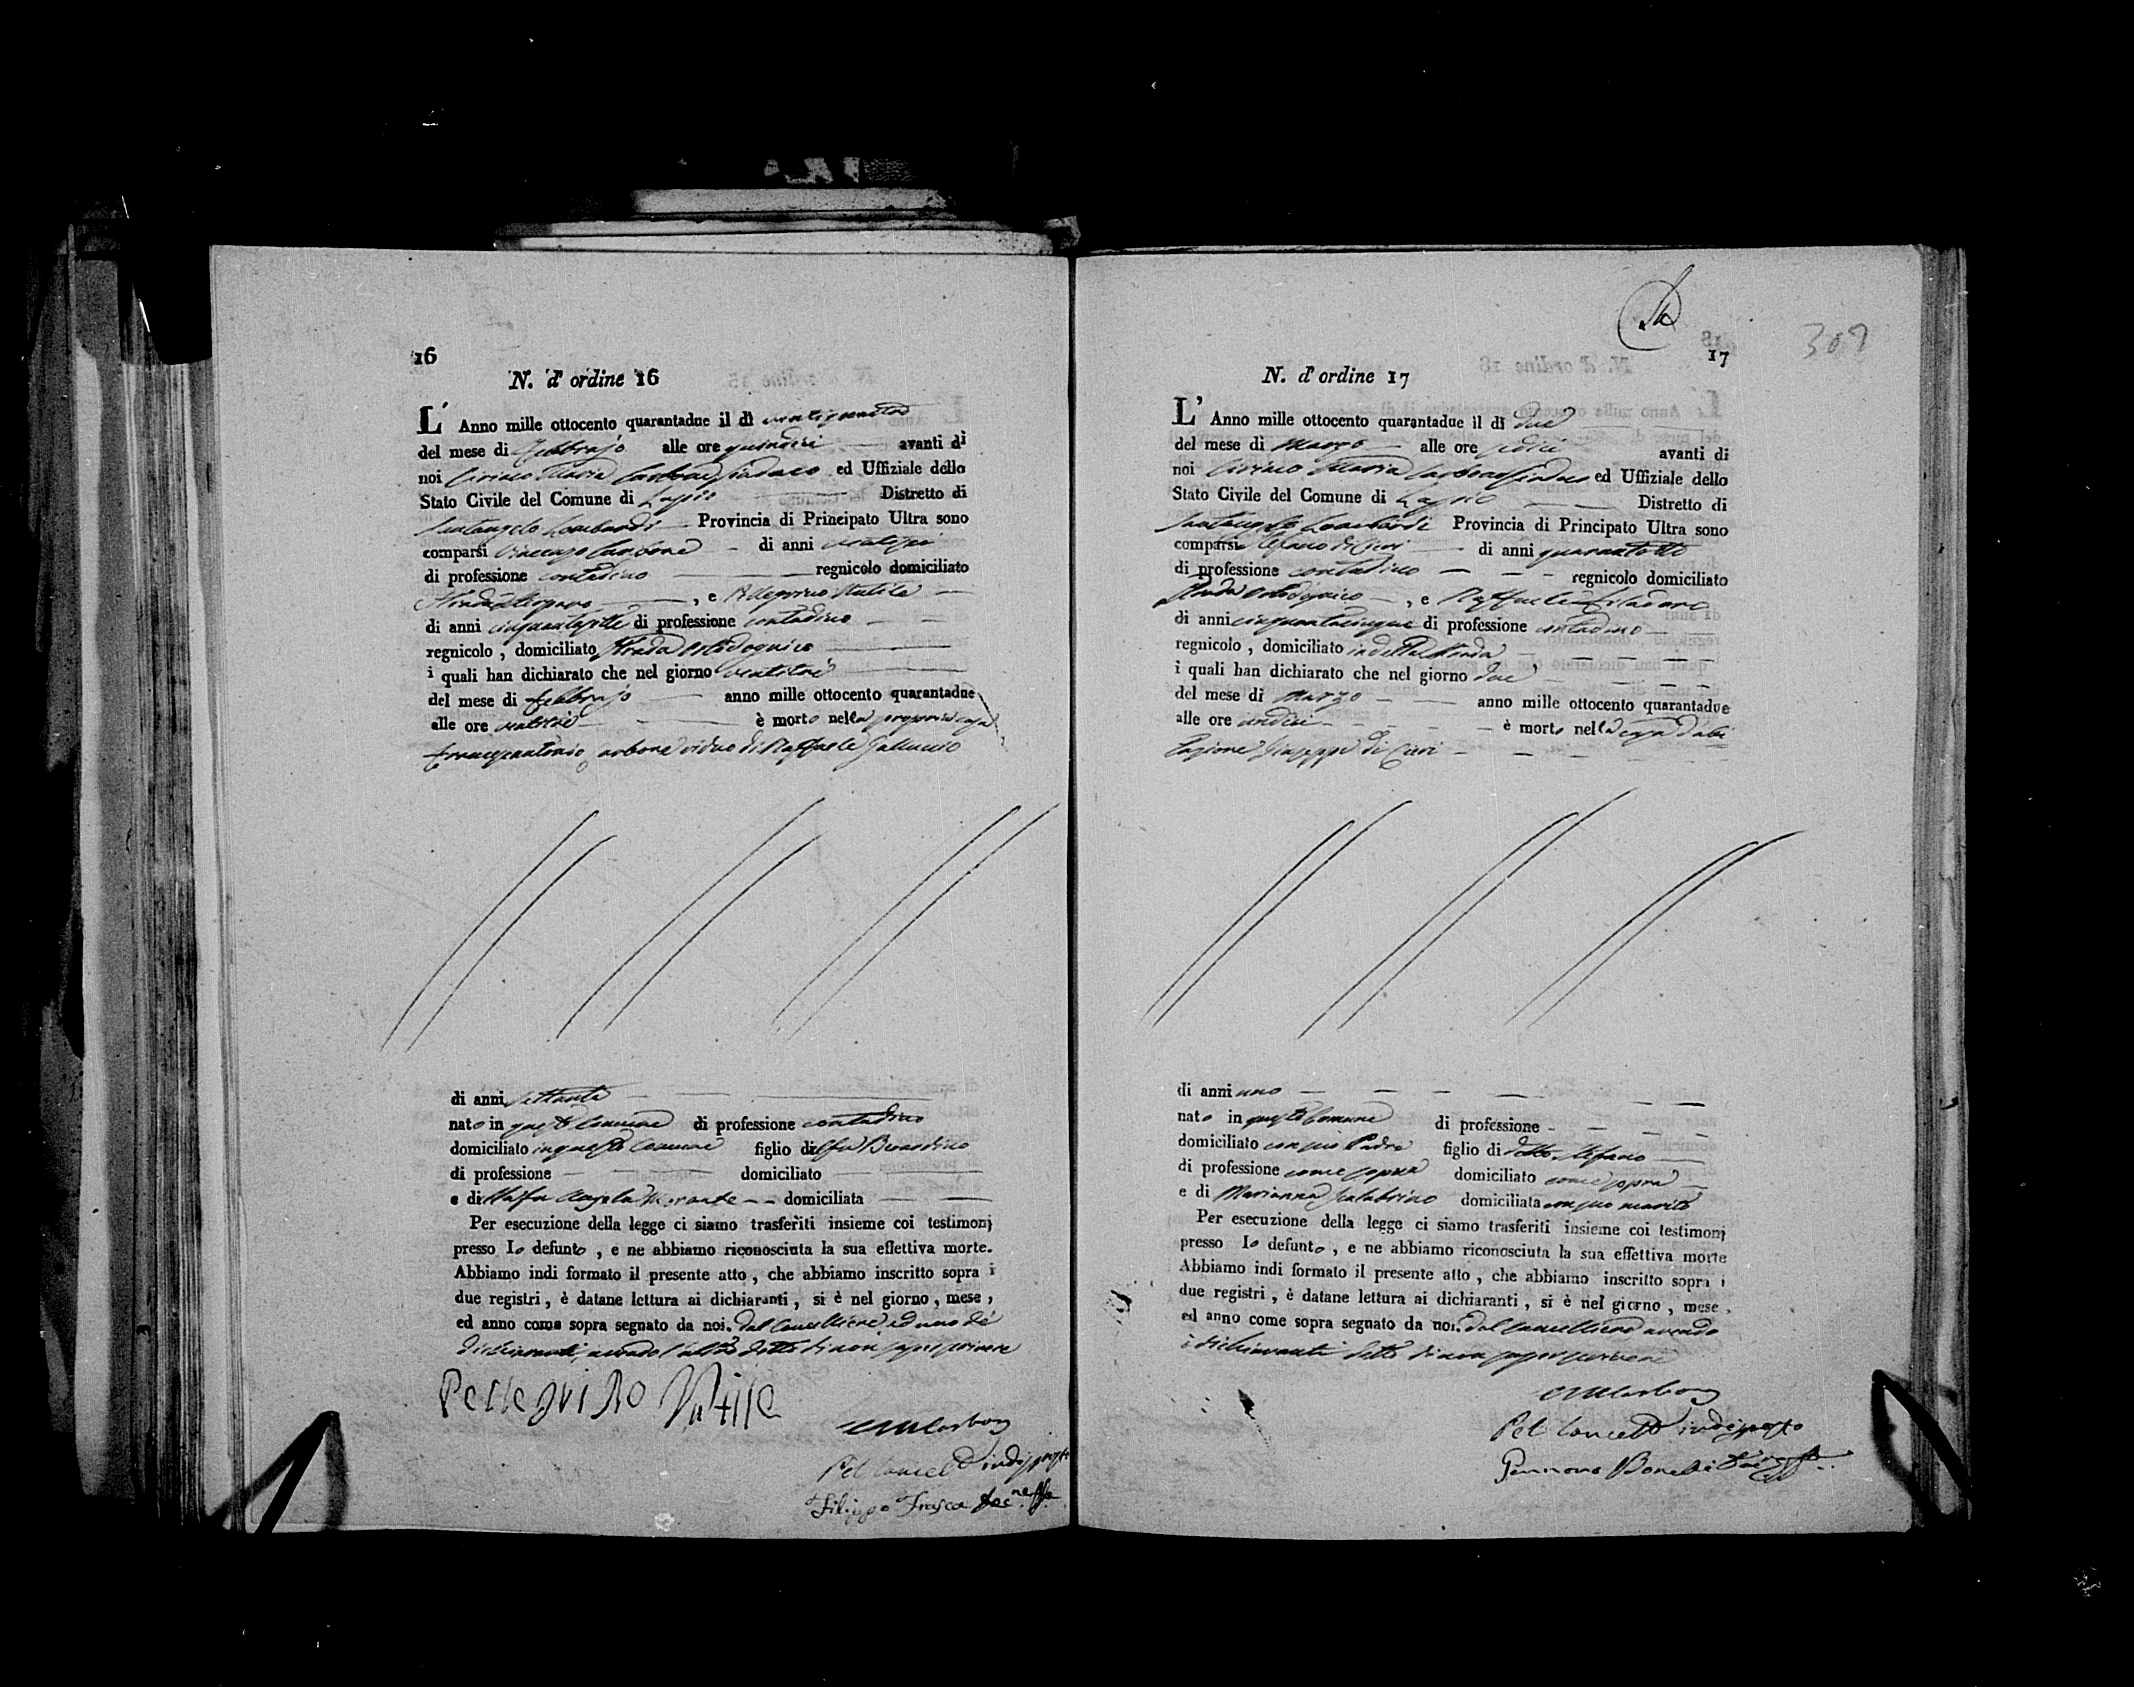 16
N. d' ordine 16
L' Anno mille ottocento quarantadue il dì ventiquattro
del mese di Febbrajo alle ore quindici avanti di
noi Ciriaco Maria Carbone Sindaco ed Uffiziale dello
Stato Civile del Comune di Lapio Distretto di
Santangelo Lombardi Provincia di Principato Ultra sono
comparsi Vincenzo Carbone di anni ventisei
di professione contadino regnicolo domiciliato
Strada , e Pellegrino Nutile
di anni cinquantasette di professione contadino
regnicolo , domiciliato Strada
i quali han dichiarato che nel giorno ventitre
del mese di Febbrajo anno mille ottocento quarantadue
alle ore ventitre è morto nella propria casa
Francescantonio Carbone viduo di Raffaela Galluccio
di anni settanta
nato in questo Comune di professione contadino
domiciliato in questo Comune figlio del fu Berardino
di professione domiciliato
e di Angela domiciliata
Per esecuzione della legge ci siamo trasferiti insieme coi testimonj
presso lo defunto , e ne abbiamo riconosciuta la sua effettiva morte.
Abbiamo indi formato il presente atto , che abbiamo inscritto sopra i
due registri , è datane lettura ai dichiaranti , si è nel giorno , mese ,
ed anno come sopra segnato da noi, dal Cancelliere ed uno de'
dichiaranti, avendo l'altro detto di non saper scrivere
Pellegrino Nutile
CMCarbone
Pel Cancell.e indisposto
Filippo Frasca
17
309
N. d' ordine 17
L' Anno mille ottocento quarantadue il dì due
del mese di Marzo alle ore sedici avanti di
noi Ciriaco Maria Carbone Sindaco ed Uffiziale dello
Stato Civile del Comune di Lapio Distretto di
Santangelo Lombardi Provincia di Principato Ultra sono
comparsi Stefano di Cieri di anni quarantotto
di professione contadino regnicolo domiciliato
Strada , e Raffaele
di anni cinquantacinque di professione contadino
regnicolo , domiciliato in detta Strada
i quali han dichiarato che nel giorno due
del mese di Marzo anno mille ottocento quarantadue
alle ore undici è morto nella casa d'abi
tazione Giuseppe di Cieri
di anni uno
nato in questo Comune di professione
domiciliato con suo Padre figlio di detto Stefano
di professione come sopra domiciliato come sopra
e di Marianna Scalabrino domiciliata con suo marito
Per esecuzione della legge ci siamo trasferiti insieme coi testimonj
presso lo defunto , e ne abbiamo riconosciuta la sua effettiva morte
Abbiamo indi formato il presente atto , che abbiamo inscritto sopra i
due registri , è datane lettura ai dichiaranti , si è nel giorno , mese ,
ed anno come sopra segnato da noi, dal Cancelliere avendo
i dichiaranti detto di non saper scrivere
CMCarbone
Pel Cancell.e indisposto